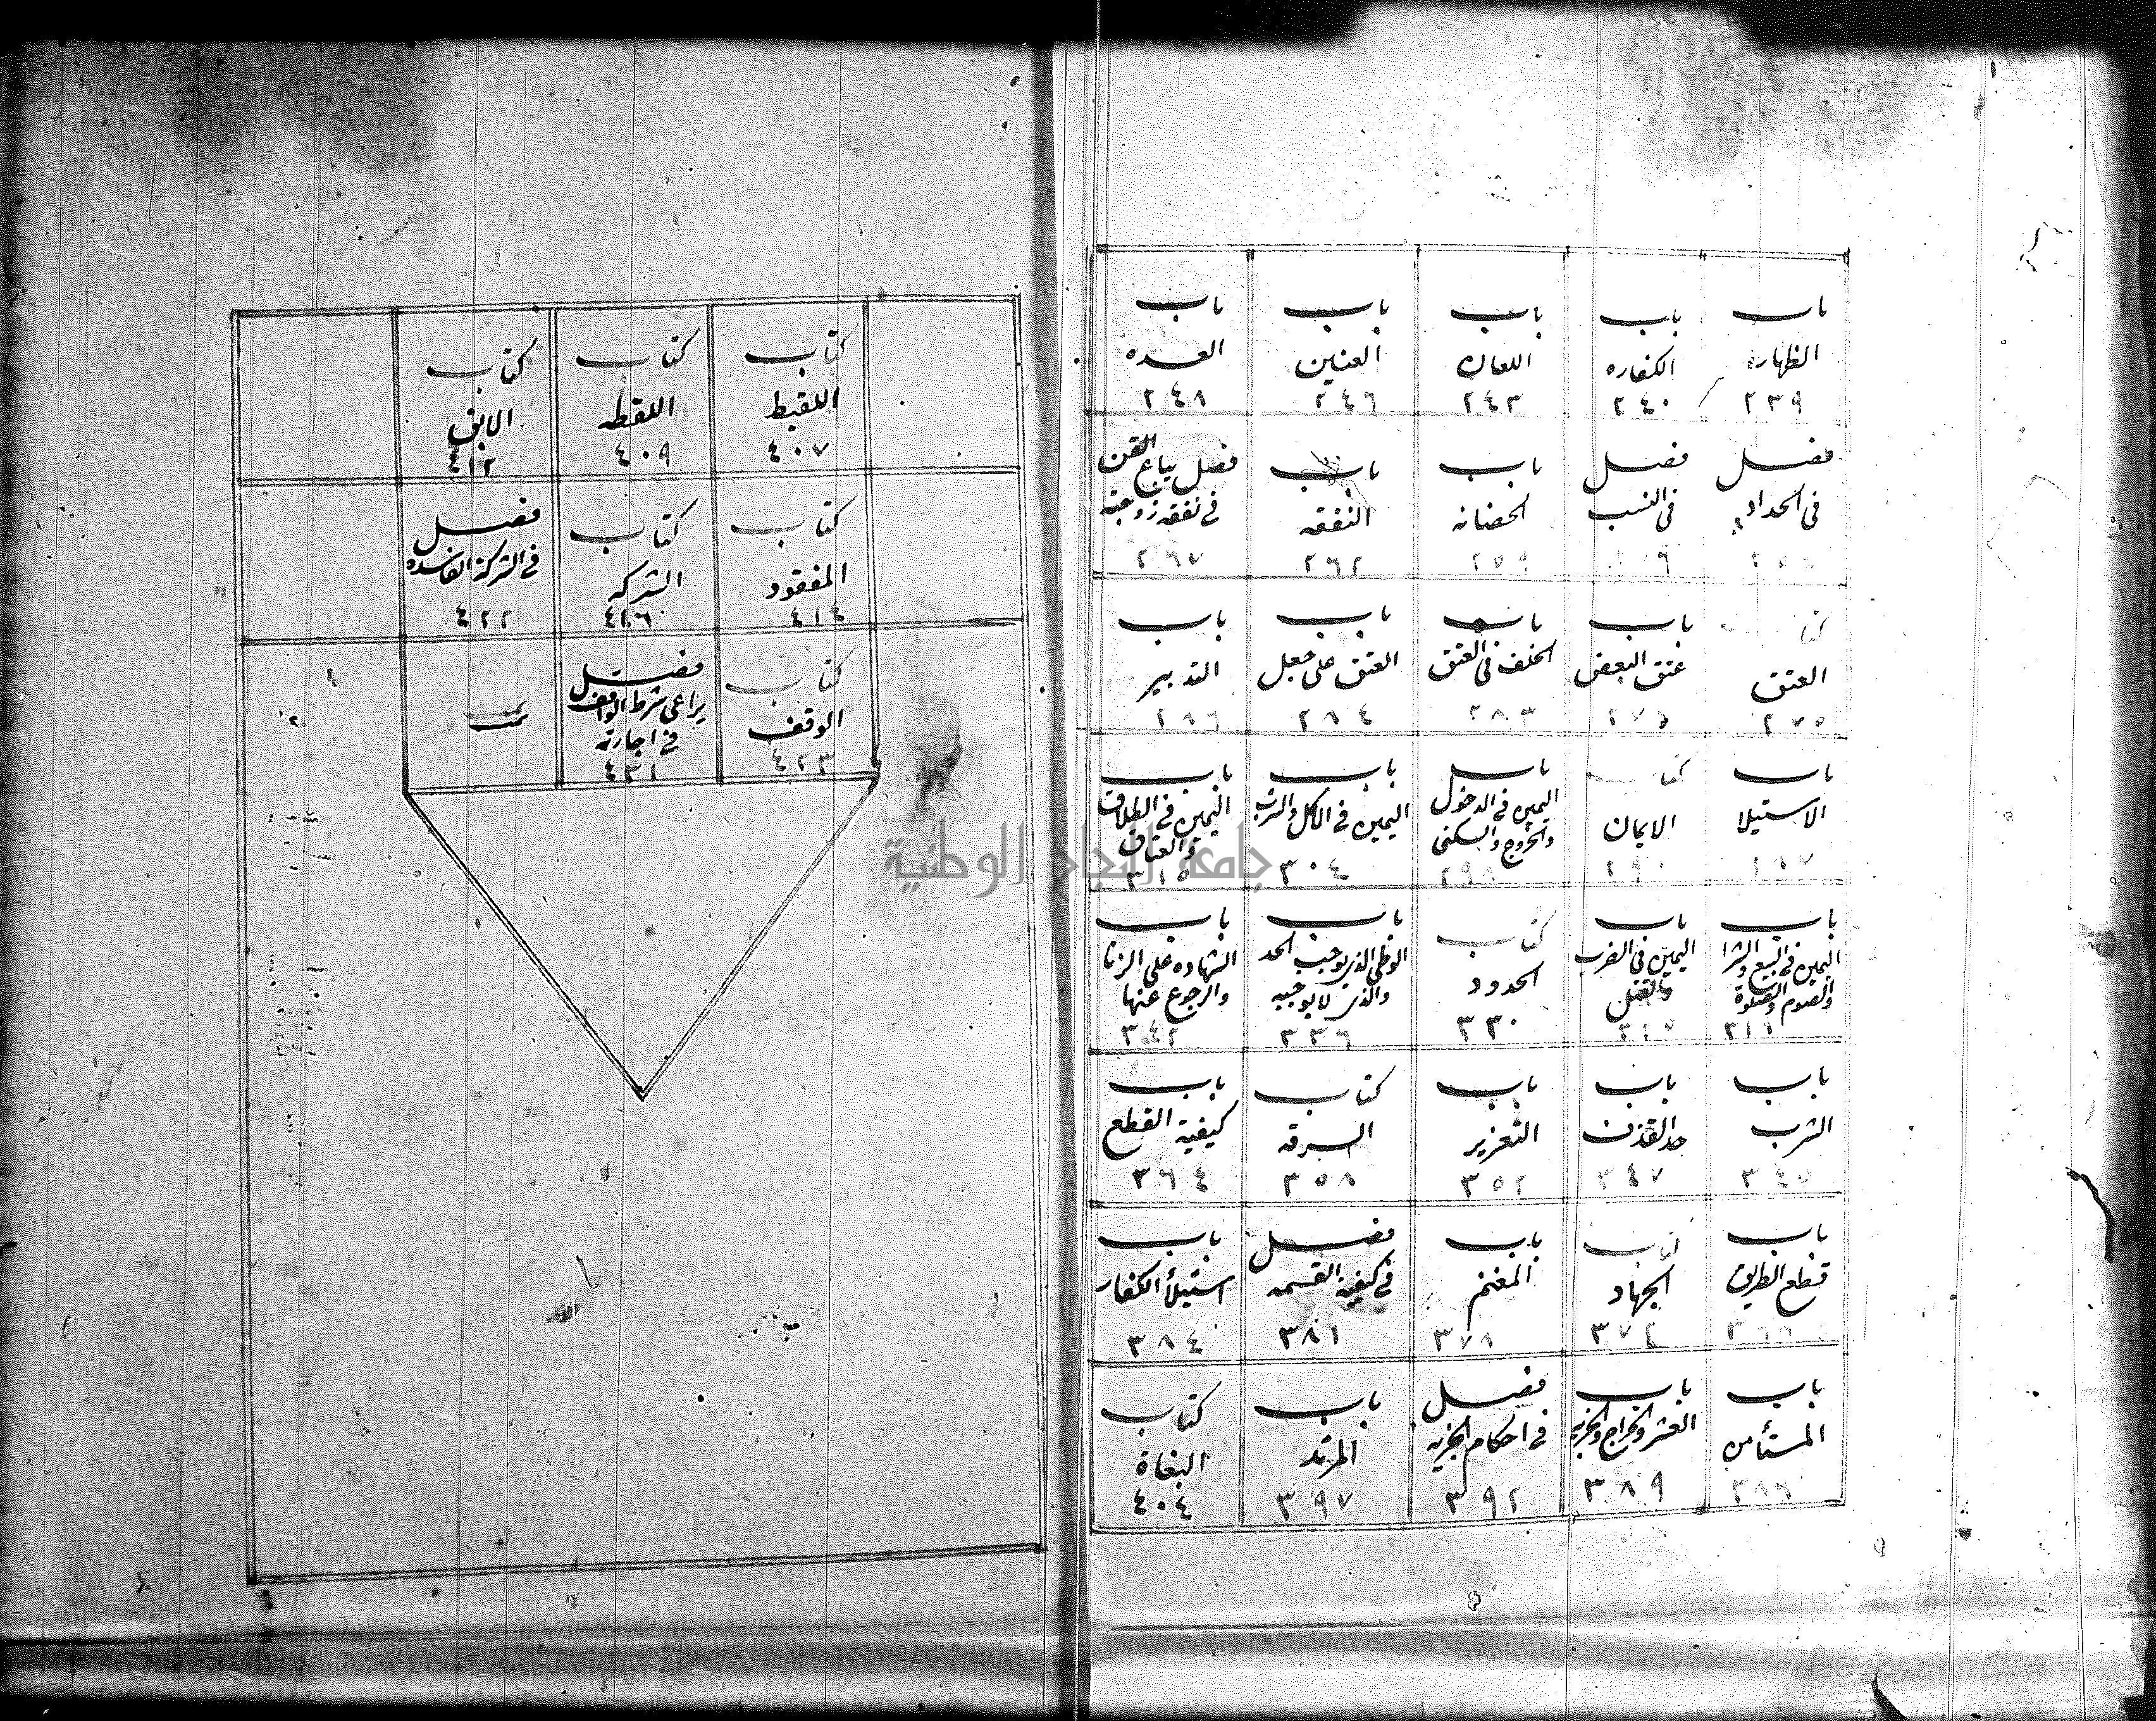 باب
الظهار
٢٣٩
باب
الكفاره
٢٤٠
باب
اللعان
٢٤٣
باب
العنين
٢٤٦
باب
العده
٢٤٨
فصل
في الحداد
فصل
في النسب
باب
الحضانه
٢٥٩
باب
النفقه
٢٦٢
فصل يباع القن
في نفقه زوجته
٢٦٧
كتاب
العتق
٢٧٥
باب
عتق البعض
٢٧٦
باب
الحلف في العتق
٢٨٣
باب
العتق على جعل
٢٨٤
باب
التدبير
٢٨٦
باب
الاستيلا
كتاب
الايمان
٢٩٠
باب
اليمين في الدخول
والخروج والسكنى
باب
اليمين في الاكل والشرب
٣٠٤
باب
اليمين في الطلاق
والعتاق
٣١٥
باب
اليمين في البيع والشرا
والصوم والصلوة
باب
اليمين في الضرب
والقتل
كتاب
الحدود
٣٣٠
باب
الوطئ الذي يوجب الحد
والذي لا يوجبه
٣٣٦
باب
الشهاده على الزنا
والرجوع عنها
٣٤٢
باب
الشرب
٣٤٥
باب
حد القذف
٣٤٧
باب
التعزير
٣٥٢
كتاب
السرقه
٣٥٨
باب
كيفية القطع
٣٦٤
باب
قطع الطريق
كتاب
الجهاد
٣٧٤
باب
المغنم
٣٧٨
فصل
في كيفية القسمه
٣٨١
باب
استيلأ الكفار
٣٨٤
باب
المستأمن
٣٨٦
باب
العشر والخراج والجزيه
٣٨٩
فصل
في احكام الجزيه
٣٩٢
باب
المرتد
٣٩٧
كتاب
البغاة
٤٠٤
كتاب
اللقيط
٤٠٧
كتاب
اللقطه
٤٠٩
كتاب
الابق
٤١٢
كتاب
المفقود
٤١٤
كتاب
الشركه
٤١٦
فصل
في الشركة الفاسده
٤٢٢
كتاب
الوقف
٤٢٣
فصل
يراعى شرط الواقف
في اجارته
٤٣١
تمت
جامعة النجاح الوطنية